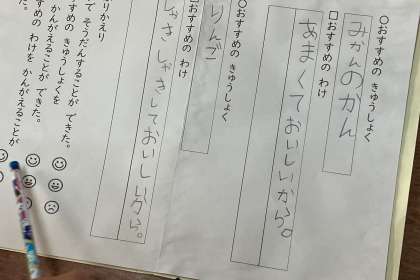 ○おすすめの きゅうしょく
みかんのかん
□おすすめの わけ
あまくておいしいから。
○おすすめの きゅうしょく
りんご
□おすすめの わけ
しゃきしゃきしておいしいから。
りかえり
で そうだんすることが できた。
すめの きゅうしょくを
かんがえることが できた。
すめの わけを かんがえることが
た。